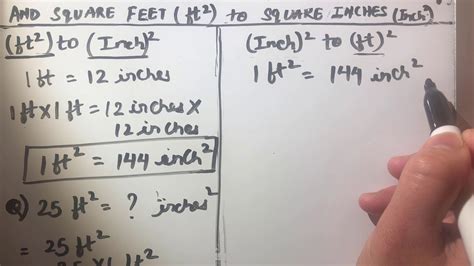 AND SQUARE FEET (ft²) to SQUARE INCHES (Inch²)
(ft²) to (Inch)²
1 ft = 12 inches
1 ft X 1 ft = 12 inches X
12 inches
1 ft² = 144 inch²
Q) 25 ft² = ? inches²
= 25 ft²
(Inch)² to (ft)²
1 ft² = 144 inch²